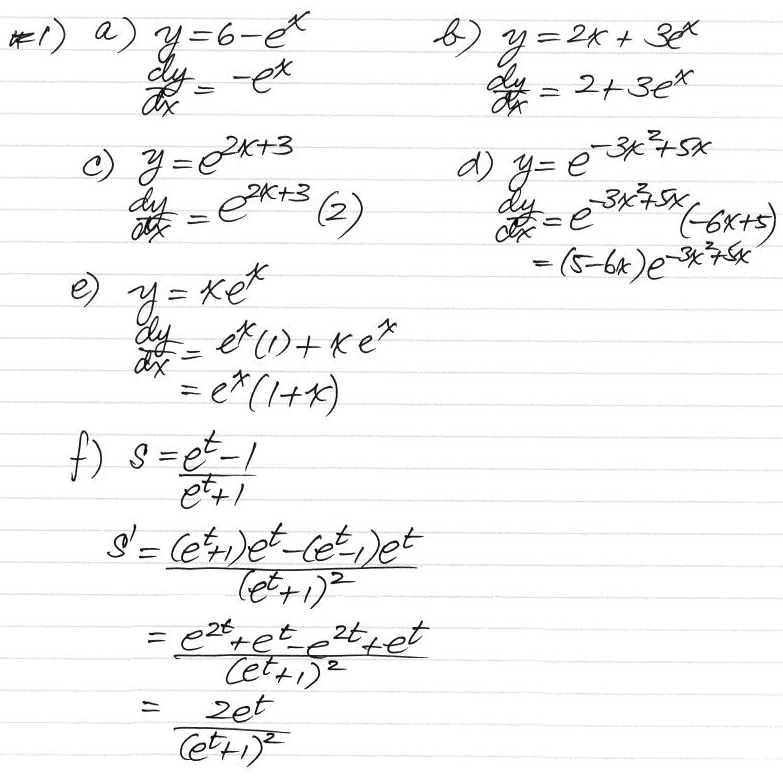 #1) a) y = 6 - e^x
dy/dx = -e^x
b) y = 2x + 3e^x
dy/dx = 2 + 3e^x
c) y = e^(2x+3)
dy/dx = e^(2x+3) (2)
d) y = e^(-3x^2+5x)
dy/dx = e^(-3x^2+5x) (-6x+5)
= (5-6x)e^(-3x^2+5x)
e) y = xe^x
dy/dx = e^x(1) + xe^x
= e^x(1+x)
f) s = (e^t - 1)/(e^t + 1)
s' = ((e^t+1)e^t - (e^t-1)e^t)/(e^t+1)^2
= (e^(2t) + e^t - e^(2t) + e^t)/(e^t+1)^2
= 2e^t/(e^t+1)^2